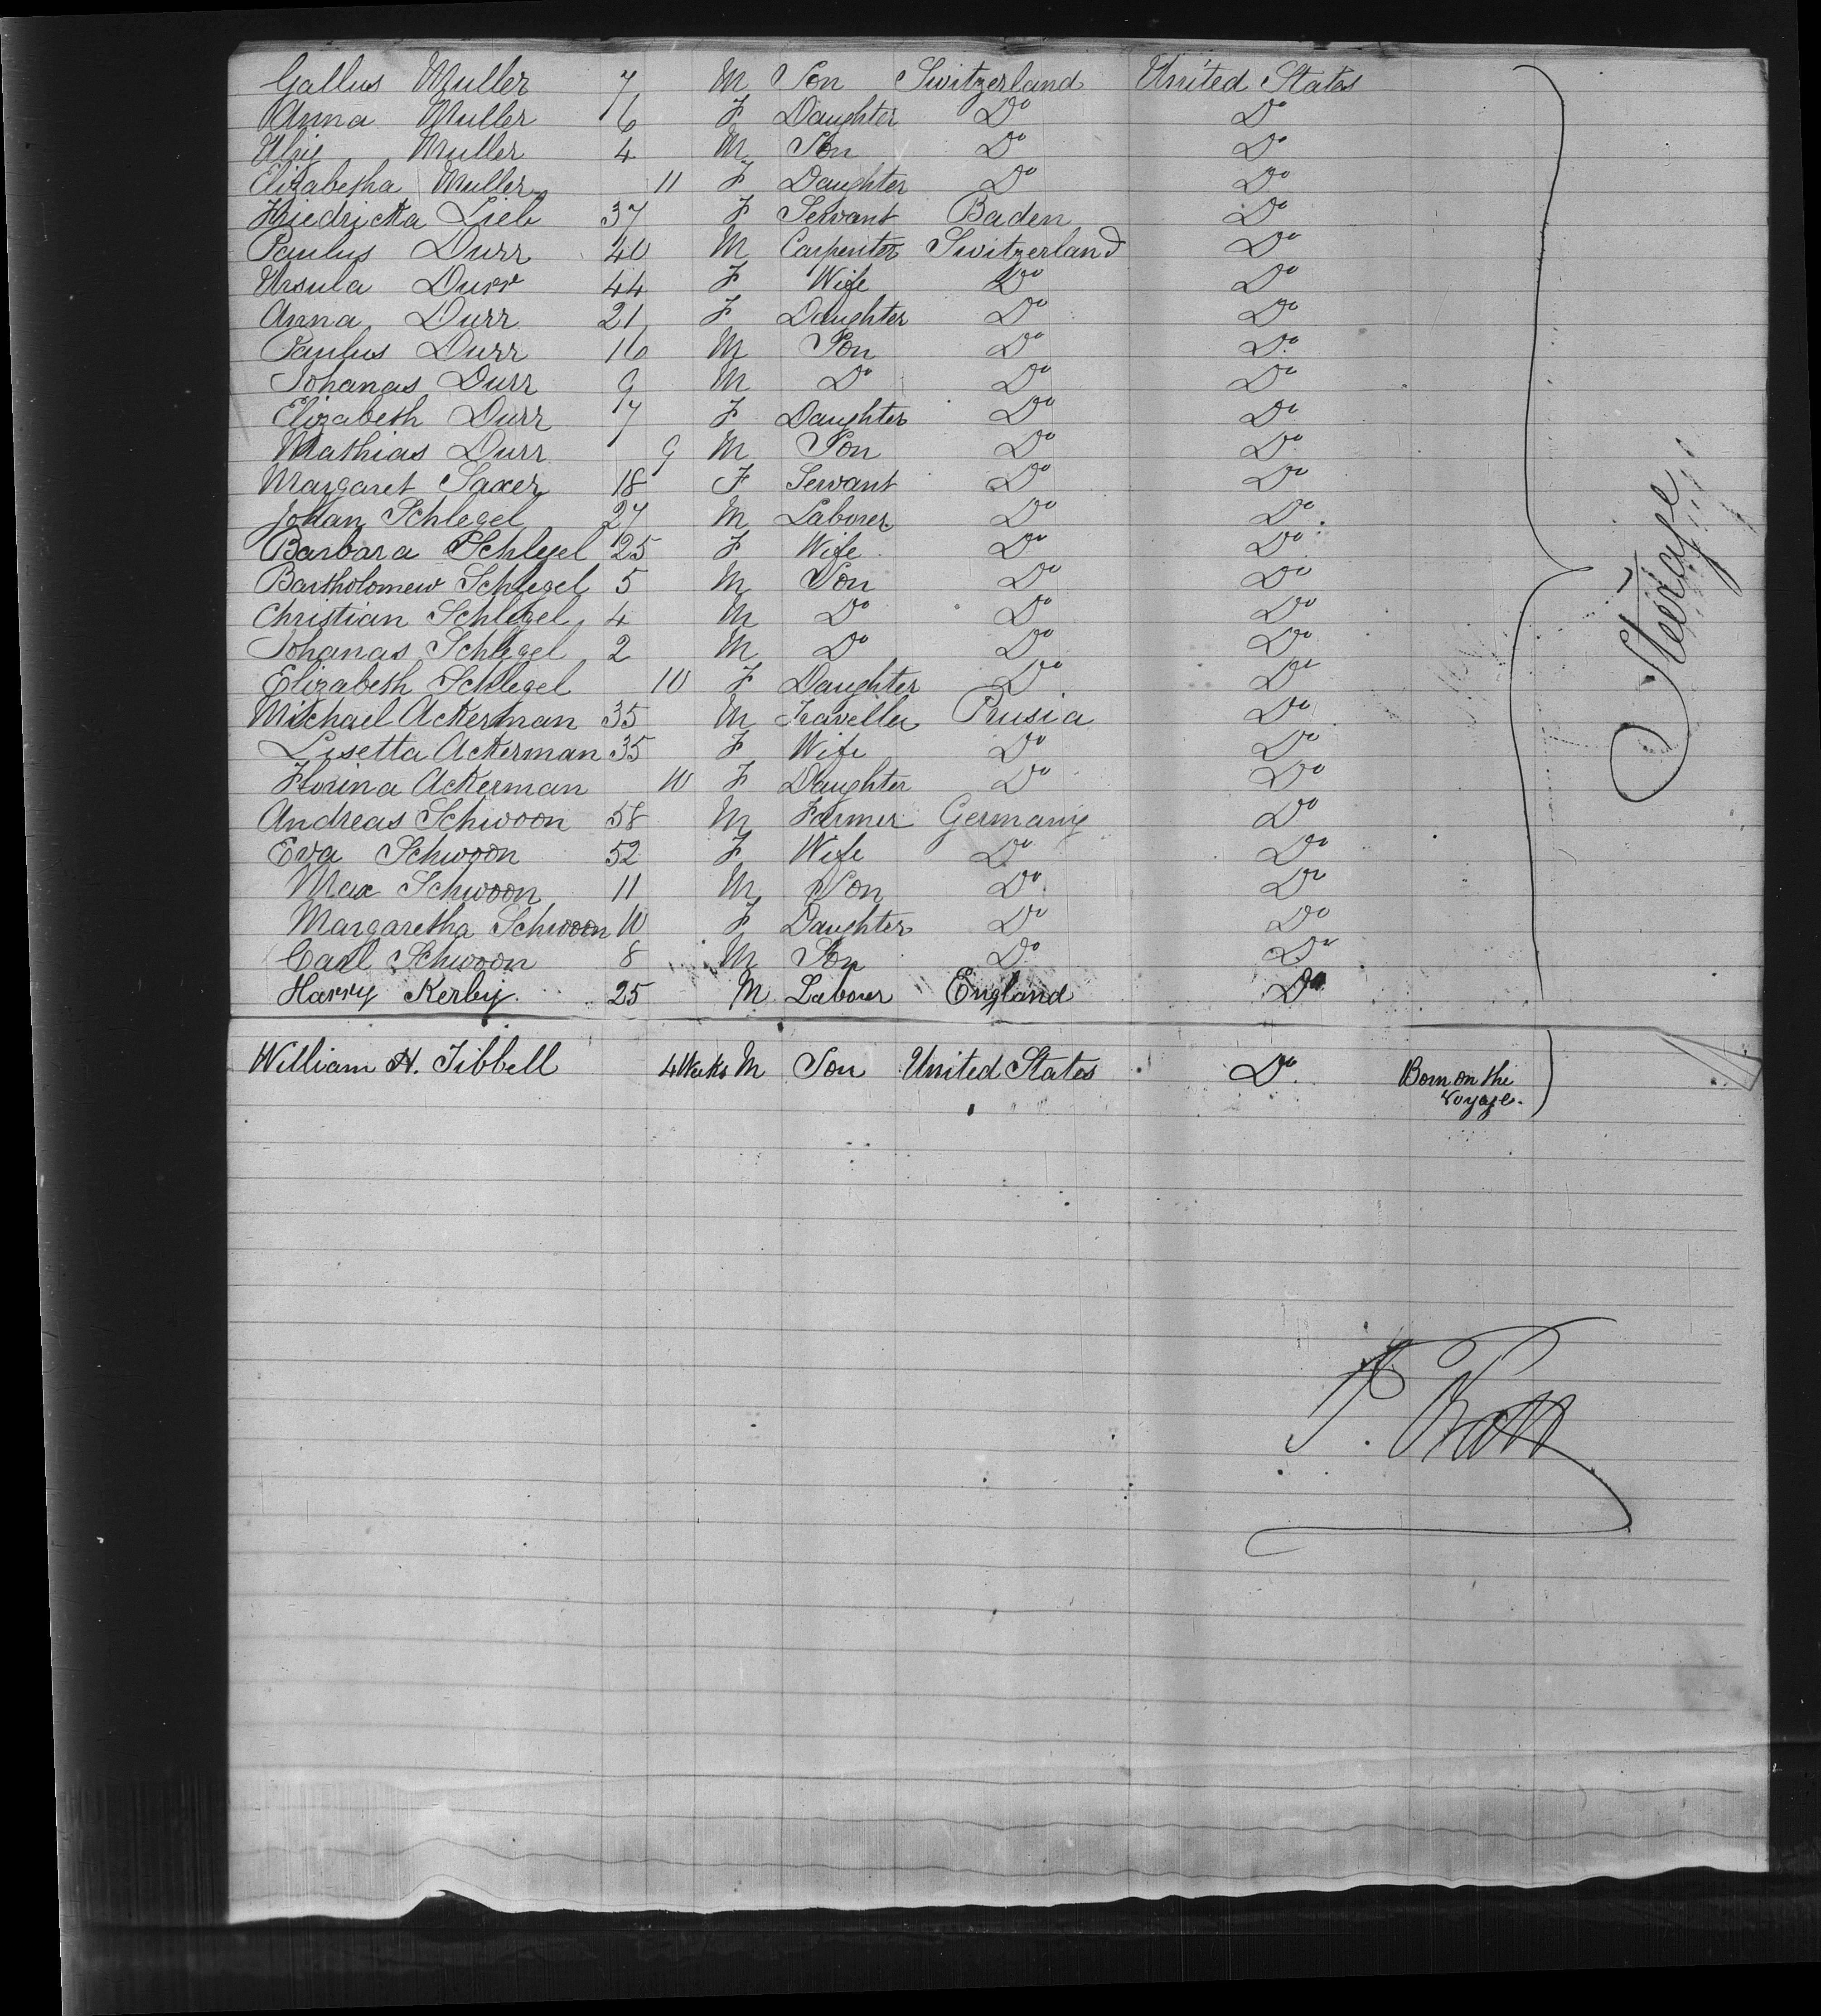 Gallus Muller 7 M Son Switzerland United States
Anna Muller 6 F Daughter Do Do
Ulrig Muller 4 M Son Do Do
Elizabetha Muller 11 F Daughter Do Do
Friedricka Lieb 37 F Servant Baden Do
Paulus Durr 40 M Carpenter Switzerland Do
Ursula Durr 44 F Wife Do Do
Anna Durr 21 F Daughter Do Do
Paulus Durr 16 M Son Do Do
Johanas Durr 9 M Do Do Do
Elizabeth Durr 7 F Daughter Do Do
Mathias Durr 9 M Son Do Do
Margaret Saxer 18 F Servant Do Do
Johan Schlegel 27 M Laborer Do Do
Barbara Schlegel 25 F Wife Do Do
Bartholomew Schlegel 5 M Son Do Do
Christian Schlegel 4 M Do Do Do
Johanas Schlegel 2 M Do Do Do
Elizabeth Schlegel 10 F Daughter Do Do
Mitchael Ackerman 35 M Traveller Prusia Do
Lisetta Ackerman 35 F Wife Do Do
Florina Ackerman 10 F Daughter Do Do
Andreas Schwoon 58 M Farmer Germany Do
Eva Schwoon 52 F Wife Do Do
Max Schwoon 11 M Son Do Do
Margaretha Schwoon 10 F Daughter Do Do
Carl Schwoon 8 M Son Do Do
Harry Kerby. 25 M Laborer England Do
Steerage
William H. Tibbell 4 Weeks M Son United States Do. Born on the
Voyage.